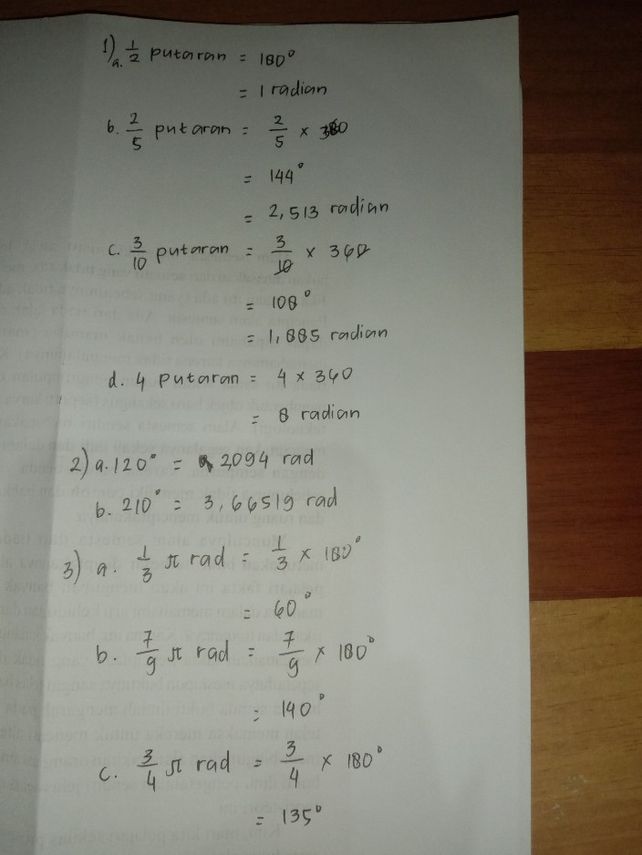 1) a. 1/2 putaran = 180°
= 1 radian
b. 2/5 putaran = 2/5 × 360
= 144°
= 2,513 radian
c. 3/10 putaran = 3/10 × 360
= 108°
= 1,885 radian
d. 4 putaran = 4 × 360
= 8 radian
2) a. 120° = 2094 rad
b. 210° = 3,66519 rad
3) a. 1/3 π rad = 1/3 × 180°
= 60°
b. 7/9 π rad = 7/9 × 180°
= 140°
c. 3/4 π rad = 3/4 × 180°
= 135°